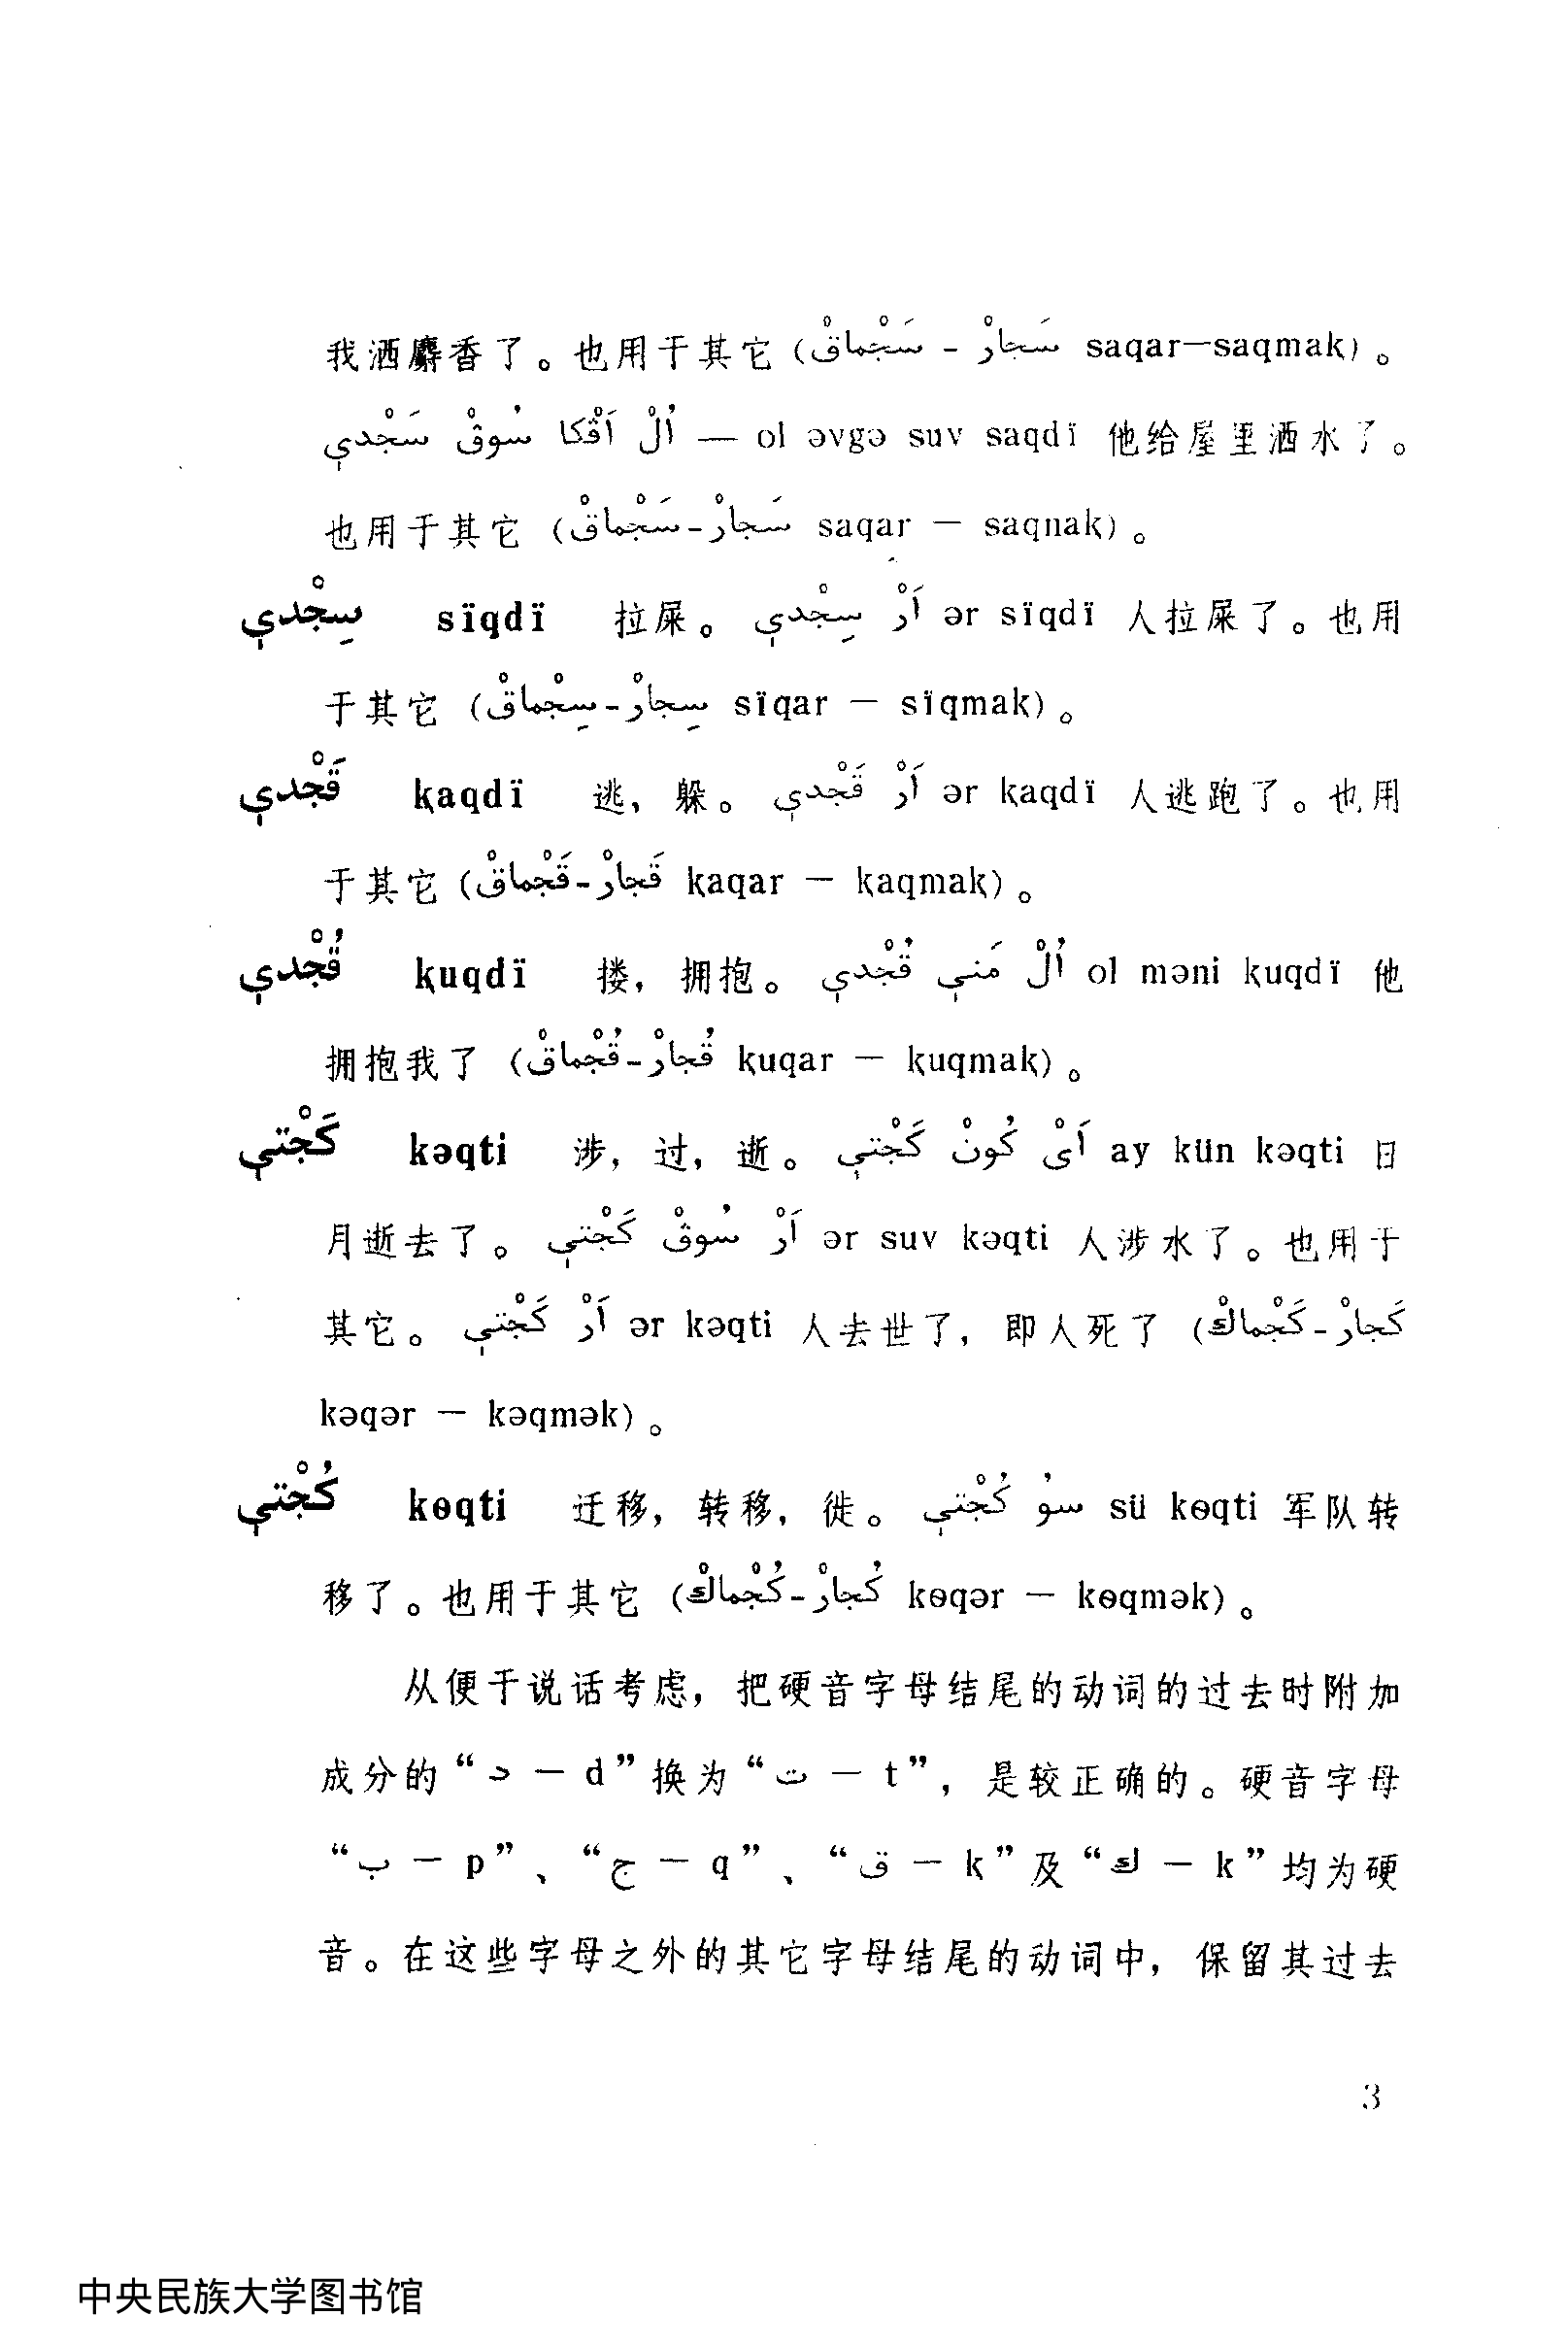 我洒麝香了。也用于其它 (سَجارْ - سَجْماقْ saqar—saqmaⱪ) 。
اُلْ اَڤْكا سُوڤْ سَجْدي — ol əvgə suv saqdï 他给屋里洒水了。
也用于其它 (سَجارْ-سَجْماقْ saqar — saqmaⱪ) 。
سِجْدي sïqdï 拉屎。 اَرْ سِجْدي ər sïqdï 人拉屎了。也用
于其它 (سِجارْ-سِجْماقْ sïqar — sïqmaⱪ) 。
قَجْدي ⱪaqdï 逃，躲。 اَرْ قَجْدي ər ⱪaqdï 人逃跑了。也用
于其它 (قَجارْ-قَجْماقْ ⱪaqar — ⱪaqmaⱪ) 。
قُجْدي ⱪuqdï 搂，拥抱。 اُلْ مَني قُجْدي ol məni ⱪuqdï 他
拥抱我了 (قُجارْ-قُجْماقْ ⱪuqar — ⱪuqmaⱪ) 。
كَجْتي kəqti 涉，过，逝。 اَيْ كُونْ كَجْتي ay kün kəqti 日
月逝去了。 اَرْ سُوڤْ كَجْتي ər suv kəqti 人涉水了。也用于
其它。 اَرْ كَجْتي ər kəqti 人去世了，即人死了 (كَجارْ-كَجْماكْ
kəqər — kəqmək) 。
كُجْتي kɵqti 迁移，转移，徙。 سوُ كُجْتي sü kɵqti 军队转
移了。也用于其它 (كُجارْ-كُجْماكْ kɵqər — kɵqmək) 。
从便于说话考虑，把硬音字母结尾的动词的过去时附加
成分的“د — d”换为“ت — t”，是较正确的。硬音字母
“ب — p”、“ج — q”、“ق — ⱪ”及“ك — k”均为硬
音。在这些字母之外的其它字母结尾的动词中，保留其过去
3
中央民族大学图书馆